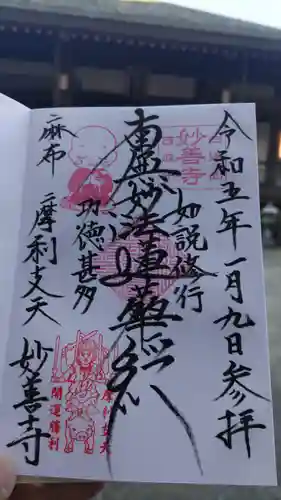 令和五年一月九日参拝
妙善寺
如説修行
南無妙法蓮華経
功徳甚多
麻布
摩利支天
開運勝利
摩利支天
妙善寺